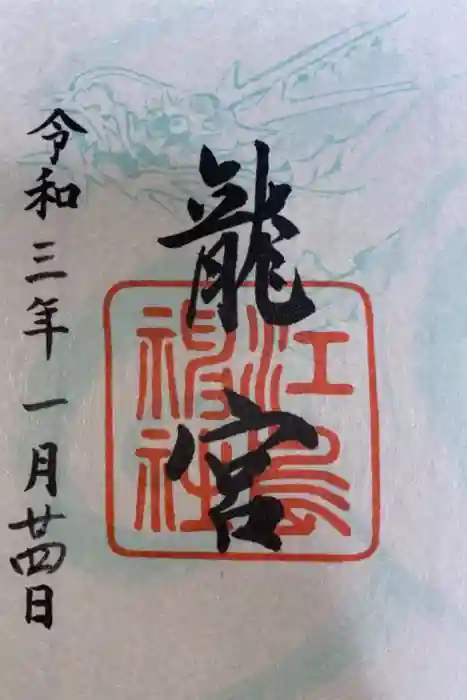 龍宮
江島
神社
令和三年一月廿四日